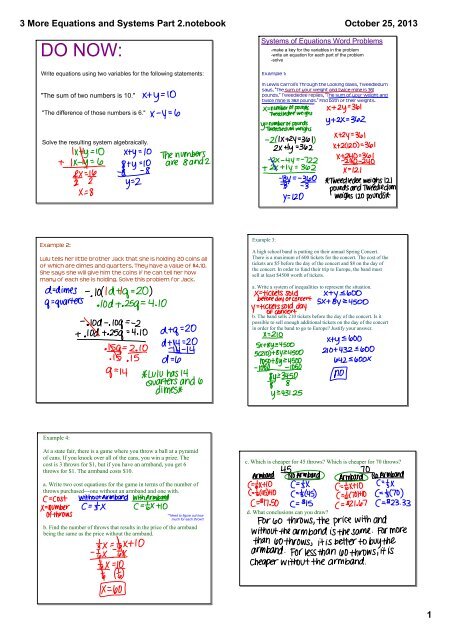 3 More Equations and Systems Part 2.notebook
October 25, 2013
DO NOW:
Write equations using two variables for the following statements:
"The sum of two numbers is 10." x+y=10
"The difference of those numbers is 6." x-y=6
Solve the resulting system algebraically.
1x+y=10
+ 1x-y=6
2x=16
2 2
x=8
x+y=10
8+y=10
-8 -8
y=2
The numbers
are 8 and 2
Systems of Equations Word Problems
-make a key for the variables in the problem
-write an equation for each part of the problem
-solve
Example 1:
In Lewis Carroll's Through the Looking Glass, Tweedledum
says, "The sum of your weight and twice mine is 361
pounds." Tweedledee replies, "The sum of your weight and
twice mine is 362 pounds." Find both of their weights.
x=number of pounds
Tweedledee weighs
y=number of pounds
Tweedledum weighs
x+2y=361
y+2x=362
-2(1x+2y=361)
2x+y=362
-2x-4y=-722
+ 2x+1y=362
-3y=-360
-3 -3
y=120
x+2y=361
x+2(120)=361
x+240=361
-240 -240
x=121
*Tweedledee weighs 121
pounds and Tweedledum
weighs 120 pounds*
Example 2:
Lulu tells her little brother Jack that she is holding 20 coins all
of which are dimes and quarters. They have a value of $4.10.
She says she will give him the coins if he can tell her how
many of each she is holding. Solve this problem for Jack.
d=dimes
q=quarters
-.10(1d+q=20)
.10d+.25q=4.10
-.10d-.10q=-2
+ .10d+.25q=4.10
.15q=2.10
.15 .15
q=14
d+q=20
d+14=20
-14-14
d=6
*Lulu has 14
quarters and 6
dimes*
Example 3:
A high school band is putting on their annual Spring Concert.
There is a maximum of 600 tickets for the concert. The cost of the
tickets are $5 before the day of the concert and $8 on the day of
the concert. In order to fund their trip to Europe, the band must
sell at least $4500 worth of tickets.
a. Write a system of inequalities to represent the situation.
x=tickets sold
before day of concert
y=tickets sold day
of concert
x+y≤600
5x+8y≥4500
b. The band sells 210 tickets before the day of the concert. Is it
possible to sell enough additional tickets on the day of the concert
in order for the band to go to Europe? Justify your answer.
x=210
5x+8y≥4500
5(210)+8y≥4500
1050+8y≥4500
-1050 -1050
8y≥3450
8 8
y≥431.25
x+y≤600
210+432≤600
642≤600X
no
Example 4:
At a state fair, there is a game where you throw a ball at a pyramid
of cans. If you knock over all of the cans, you win a prize. The
cost is 3 throws for $1, but if you have an armband, you get 6
throws for $1. The armband costs $10.
a. Write two cost equations for the game in terms of the number of
throws purchased---one without an armband and one with.
C=cost
x=number
of throws
without Armband
C=1/3x
with Armband
C=1/6x+10
*Need to figure out how
much for each throw!!
b. Find the number of throws that results in the price of the armband
being the same as the price without the armband.
1/3x=1/6x+10
-1/6x -1/6x
1/6x=10
x=60
c. Which is cheaper for 45 throws? Which is cheaper for 70 throws?
45
Armband
C=1/6x+10
C=1/6(45)+10
C=$17.50
No Armband
C=1/3x
C=1/3(45)
C=$15
70
Armband
C=1/6x+10
C=1/6(70)+10
C=$21.67
No Armband
C=1/3x
C=1/3(70)
C=$23.33
d. What conclusions can you draw?
For 60 throws, the price with and
without the armband is the same. For more
than 60 throws, it is better to buy the
armband. For less than 60 throws, it is
cheaper without the armband.
1